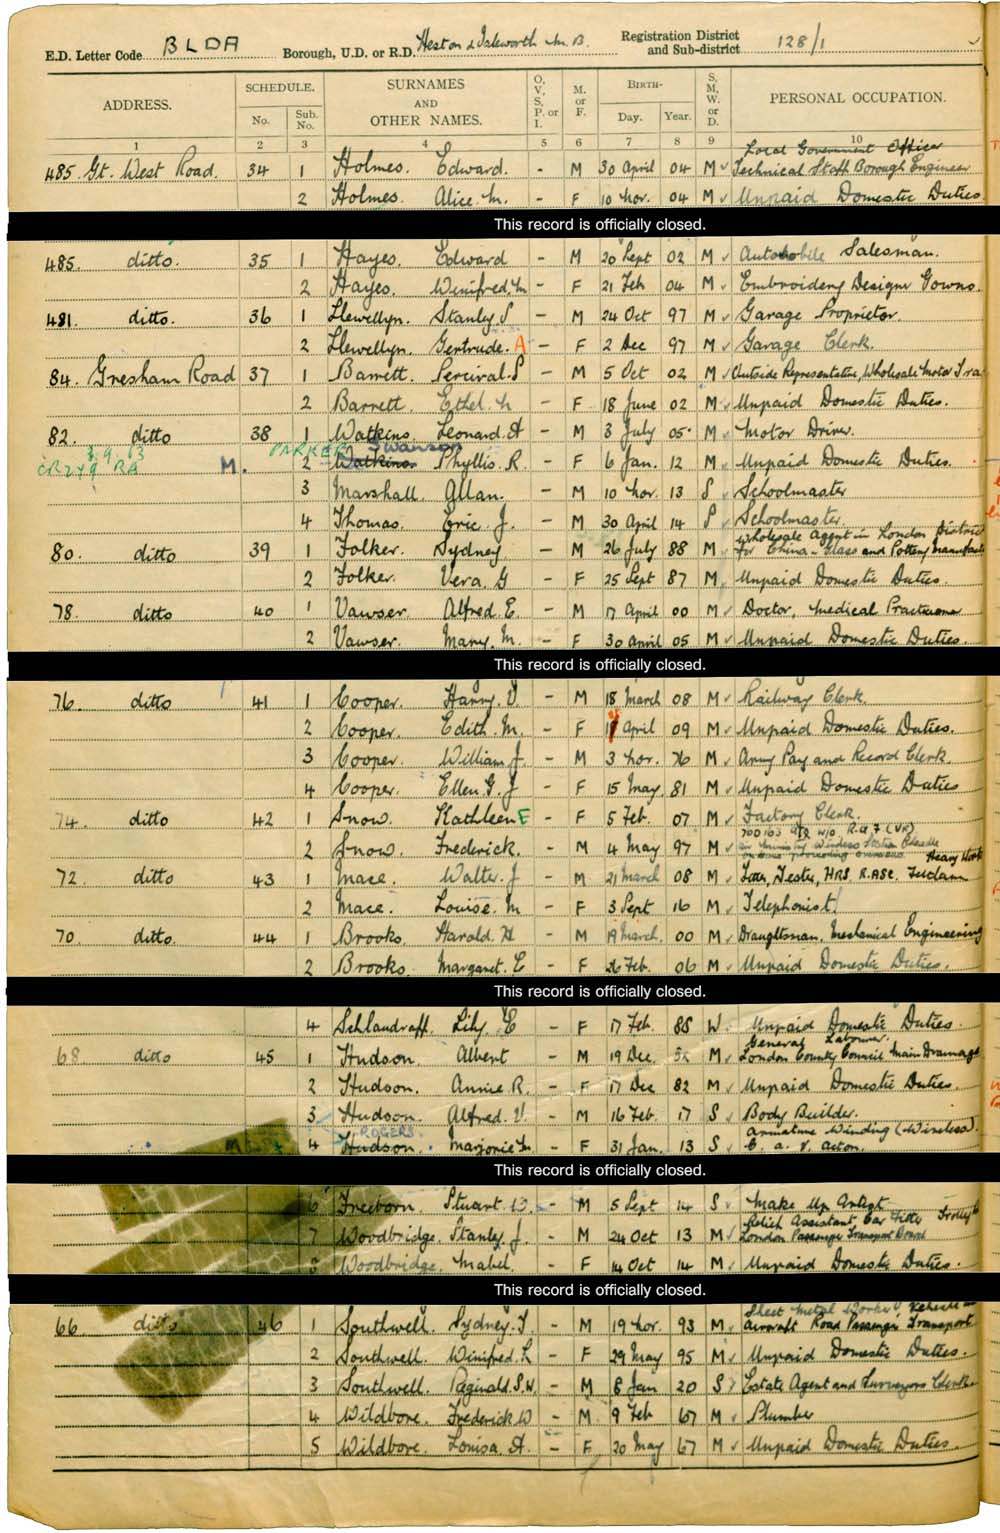 E.D. Letter Code BLDA Borough, U.D. or R.D. Heston & Isleworth M.B. Registration District and Sub-district 128/1
ADDRESS. SCHEDULE. No. Sub. No. SURNAMES AND OTHER NAMES. O, V, S, P. or I. M. or F. BIRTH- Day. Year. S, M, W. or D. PERSONAL OCCUPATION.
1 2 3 4 5 6 7 8 9 10
Local Government Officer
485 Gt. West Road. 34 1 Holmes. Edward. - M 30 April 04 M Technical Staff Borough Engineer
2 Holmes. Alice. M. - F 10 Nov. 04 M Unpaid Domestic Duties
This record is officially closed.
485. ditto. 35 1 Hayes. Edward - M 20 Sept 02 M Automobile Salesman.
2 Hayes. Winifred. M - F 21 Feb 04 M Embroidery Designer Gowns.
481. ditto. 36 1 Llewellyn. Stanley. S - M 24 Oct 97 M Garage Proprietor.
2 Llewellyn. Gertrude. A - F 2 Dec 97 M Garage Clerk.
84. Gresham Road 37 1 Barrett. Percival. S - M 5 Oct 02 M Outside Representative, Wholesale Motor Tra
2 Barrett. Ethel. - F 18 June 02 M Unpaid Domestic Duties.
82. ditto 38 1 Watkins. Leonard. A - M 3 July 05 M Motor Driver.
3.9.63 PARKER Swanson
CR249 BA M. 2 Watkins Phyllis. R. - F 6 Jan. 12 M Unpaid Domestic Duties.
3 Marshall. Allan. - M 10 Nov. 13 S Schoolmaster
4 Thomas. Eric. J. - M 30 April 14 S Schoolmaster
Wholesale Agent in London District
80. ditto 39 1 Folker. Sydney - M 26 July 88 M for China-Glass and Pottery Manufact
2 Folker. Vera. G - F 25 Sept 87 M Unpaid Domestic Duties.
78. ditto 40 1 Vawser. Alfred. E. - M 17 April 00 M Doctor, Medical Practitioner
2 Vawser. Mary. M. - F 30 April 05 M Unpaid Domestic Duties.
This record is officially closed.
76. ditto 41 1 Cooper. Harry. V. - M 18 March 08 M Railway Clerk.
2 Cooper. Edith. M. - F April 09 M Unpaid Domestic Duties.
3 Cooper. William. J. - M 3 Nov. 76 M Army Pay and Record Clerk.
4 Cooper. Ellen. G. J - F 15 May. 81 M Unpaid Domestic Duties
74. ditto 42 1 Snow. Kathleen E - F 5 Feb. 07 M Factory Clerk.
700103 W/O R.A.F (VR)
2 Snow. Frederick. - M 4 May 97 M Air Ministry Wireless Station Cheadle
Heavy Work
72. ditto 43 1 Mace. Walter. J - M 21 March 08 M Tester, HRS. R.ASC. Feltham
2 Mace. Louise. M - F 3 Sept 16 M Telephonist
70. ditto. 44 1 Brooks. Harold. H - M 19 March. 00 M Draughtsman. Mechanical Engineering
2 Brooks. Margaret. E - F 26 Feb. 06 M Unpaid Domestic Duties.
This record is officially closed.
4 Schlandraff. Lily. E - F 17 Feb. 85 W. Unpaid Domestic Duties.
General Labourer.
68 ditto 45 1 Hudson. Albert - M 19 Dec. M London County Council Main Drainage
2 Hudson. Annie R. - F 17 Dec 82 M Unpaid Domestic Duties.
3 Hudson. Alfred. V. - M 16 Feb. 17 S Body Builder.
ROGERS. Armature Winding (Wireless).
M 4 Hudson. Marjorie M. - F 31 Jan. 13 S C. A. V. Acton.
This record is officially closed.
6 Freeborn. Stuart. - M 5 Sept 14 S Make Up Artist
Relief Assistant Car Fitter Trolley
7 Woodbridge. Stanley. J. - M 24 Oct 13 M London Passenger Transport Board
8 Woodbridge. Mabel. F 14 Oct 14 M Unpaid Domestic Duties.
This record is officially closed.
Sheet Metal Worker Vehicle
66. ditto 46 1 Southwell. Sydney. T. - M 19 Nov. 93 M Aircraft Road Passenger Transport
2 Southwell. Winifred. L - F 29 May 95 M Unpaid Domestic Duties.
3 Southwell. Reginald. S.W. - M 8 Jan 20 S Estate Agent and Surveyors Clerk
4 Wildbore. Frederick. W - M 9 Feb 67 M Plumber
5 Wildbore. Louisa. A. - F 20 May 67 M Unpaid Domestic Duties.